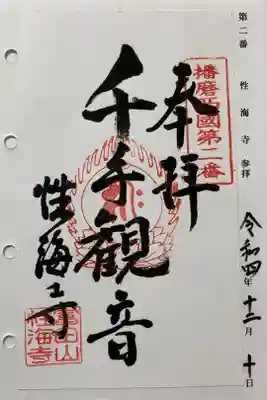 第二番 性海寺 参拝
令和四年十二月十日
奉拝
播磨西國第二番
千手觀音
性海寺
性海寺